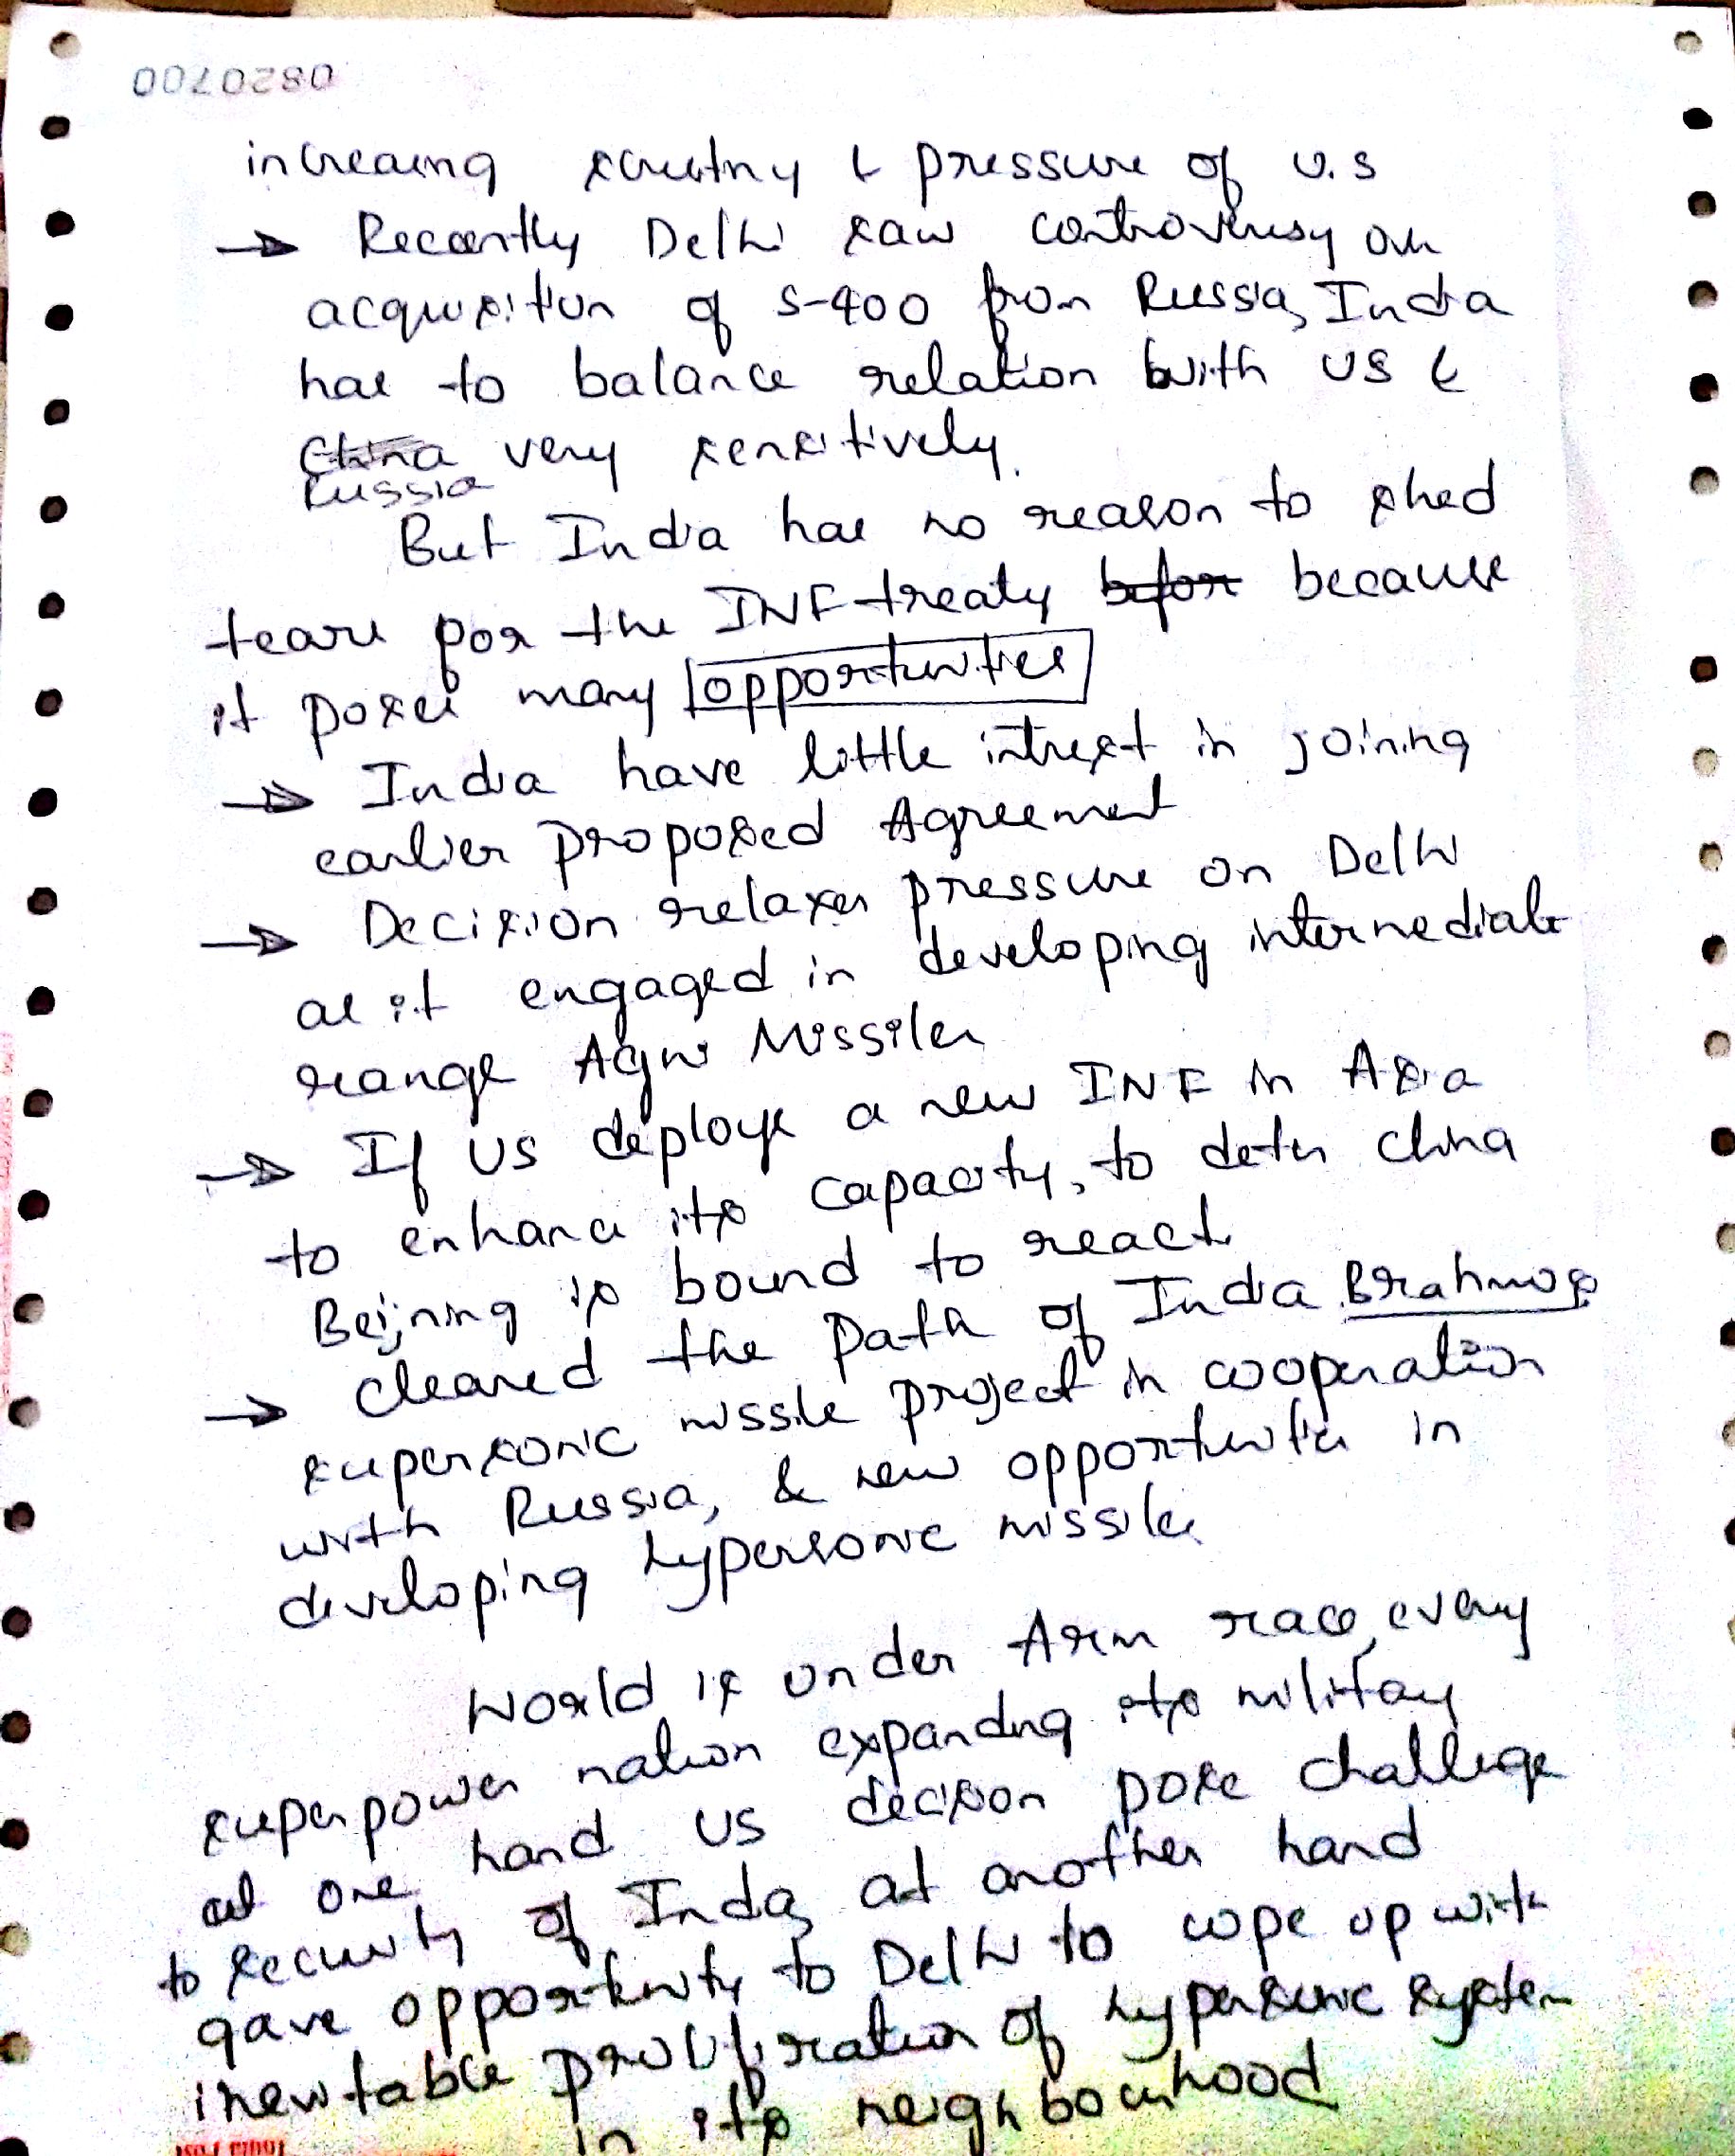 0820700
increaing scrutny & pressure of U.S
→ Recently Delhi saw controversy over
acquisition of S-400 from Russia, India
has to balance relation with US &
China very sensitively.
Russia
But India has no reason to shed
tears for the INF treaty befor because
it poses many opportunities
→ India have little intrest in joining
earlier proposed Agreement
→ Decision relaxes pressure on Delhi
as it engaged in developing intermediate
range Agni Missiles
→ If US deploys a new INF in Asia
to enhance its capacity, to deter china
Beijning is bound to react.
→ cleared the path of India Brahmos
supersonic missile project in cooperation
with Russia, & new opportunities in
developing hypersonic missiles
World is under Arm race, every
superpower nation expanding its military
at one hand US decision pose challenge
to security of India, at another hand
gave opportunity to Delhi to cope up with
inevitable prolifiration of hypersonic system
in its neighbourhood